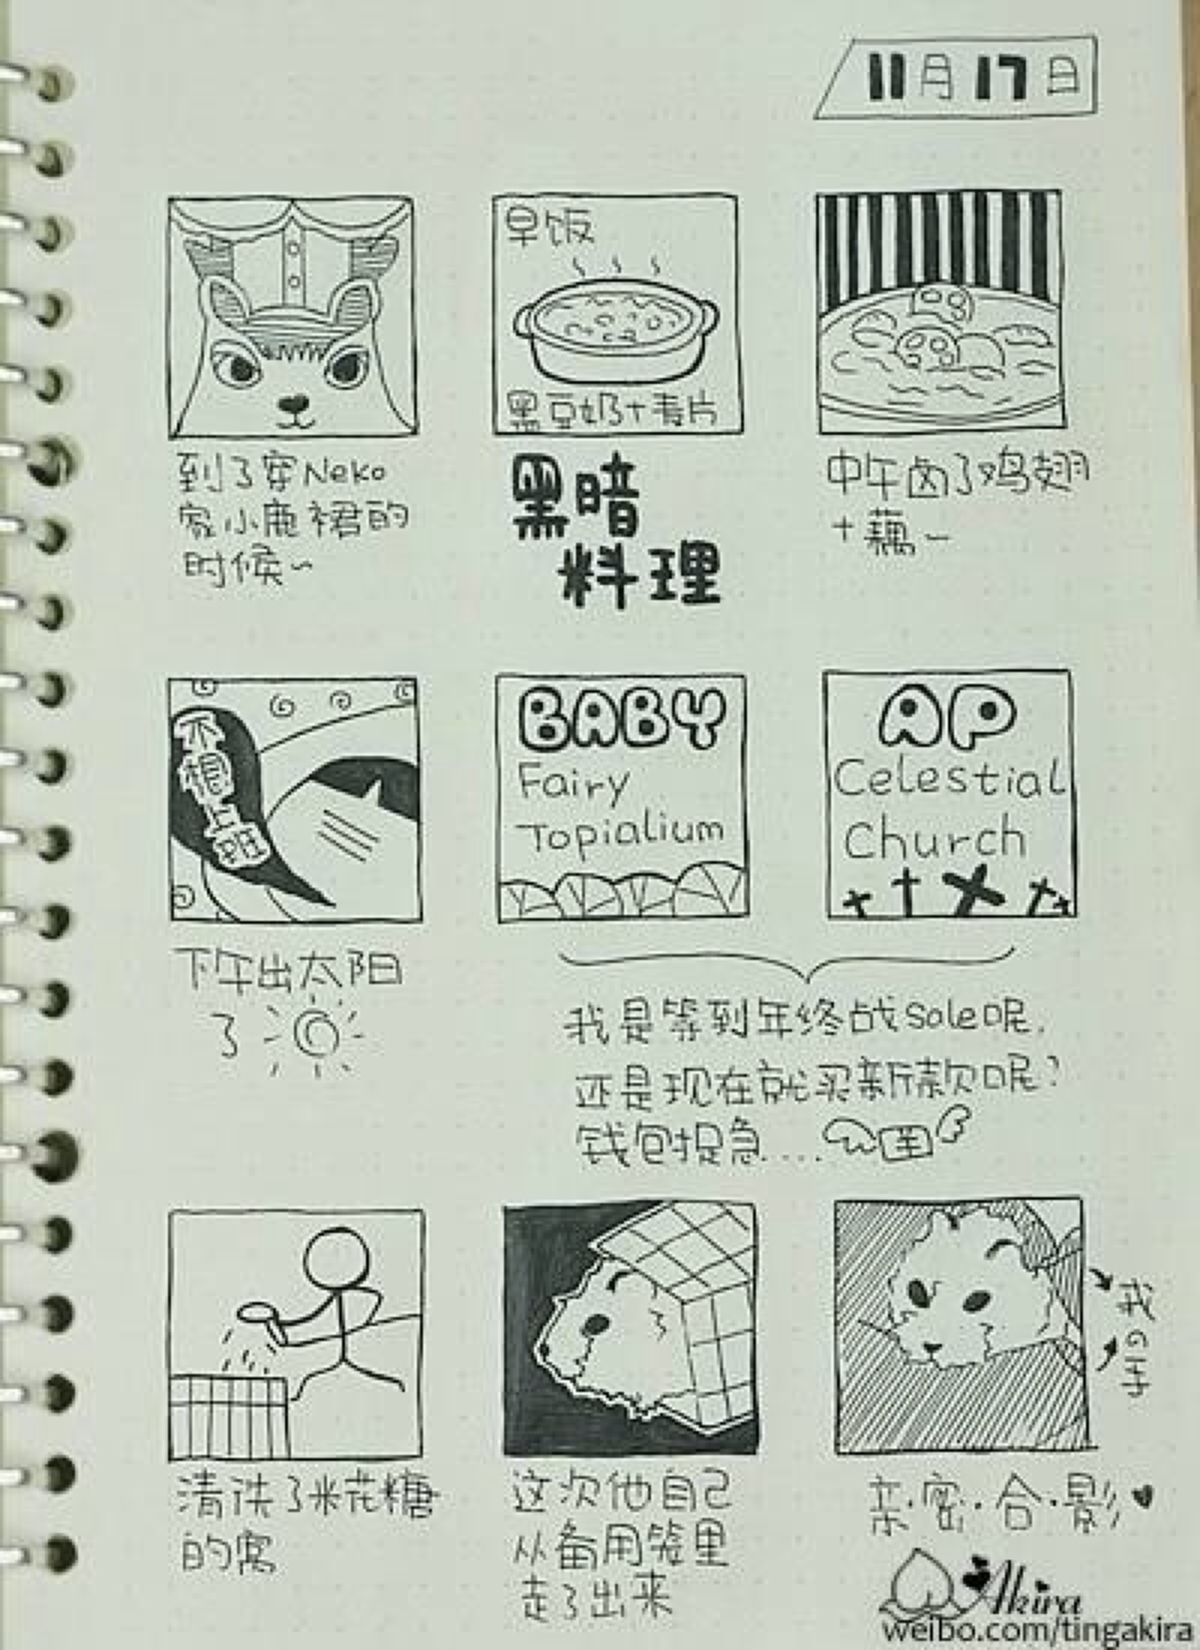 11月17日
到了穿Neko
家小鹿裙的
时候~
早饭
黑豆奶+麦片
黑暗
料理
中午卤了鸡翅
+藕~
不想上班
下午出太阳
了
BABY
Fairy
Topialium
AP
Celestial
Church
我是等到年终战Sale呢,
还是现在就买新款呢?
钱包捉急....
清洗了米花糖
的窝
这次他自己
从备用笼里
走了出来
我の手
亲·密·合·影♥
Akira
weibo.com/tingakira